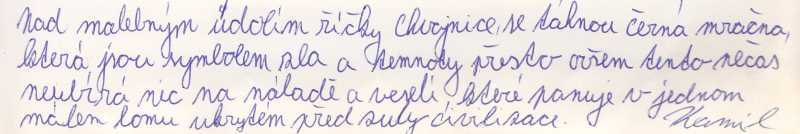 Nad malebným údolím říčky Chvojnice, se táhnou černá mračna,
která jsou symbolem zla a temnoty přesto ovšem tento nečas
neubírá nic na náladě a veselí které panuje v jednom
malém lomu ukrytém před zuby civilizace. Kamil